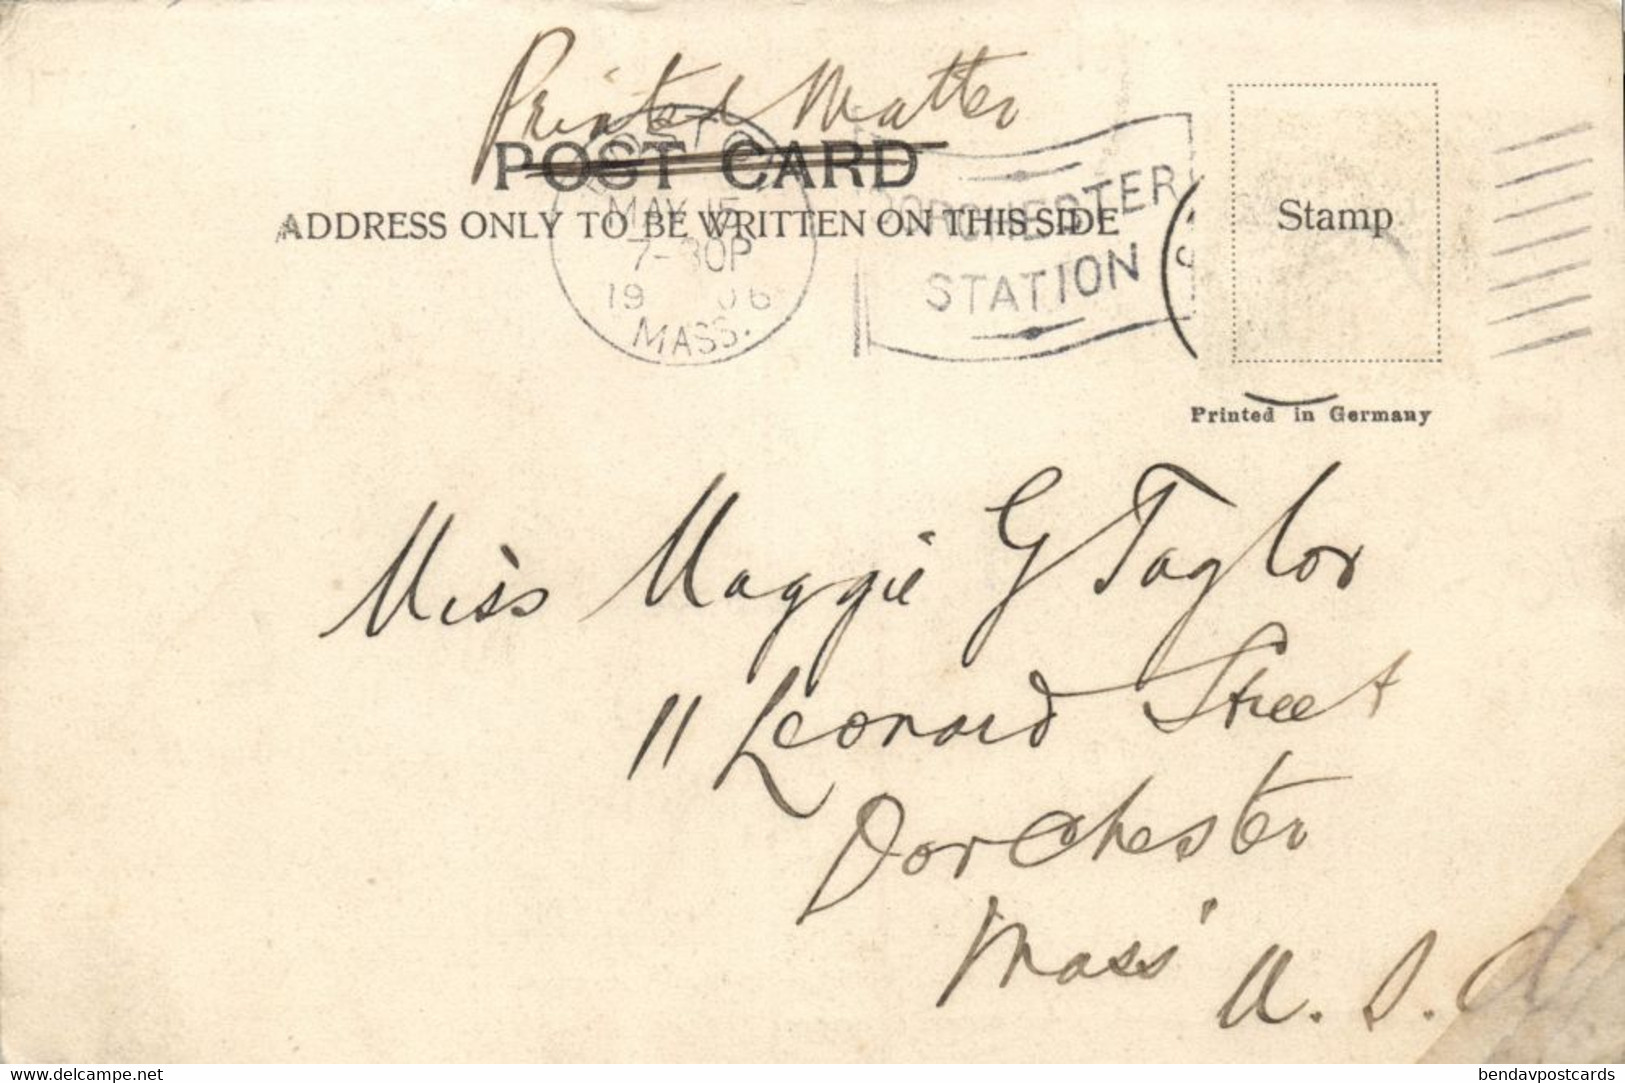 Printed Matter
POST CARD
ADDRESS ONLY TO BE WRITTEN ON THIS SIDE
MAY 15
7-30P
1906
MASS.
DORCHESTER
STATION
Stamp
Printed in Germany
Miss Maggie G Taylor
11 Leonard Street
Dorchester
Mass
U. S. A
www.delcampe.net
bendavpostcards